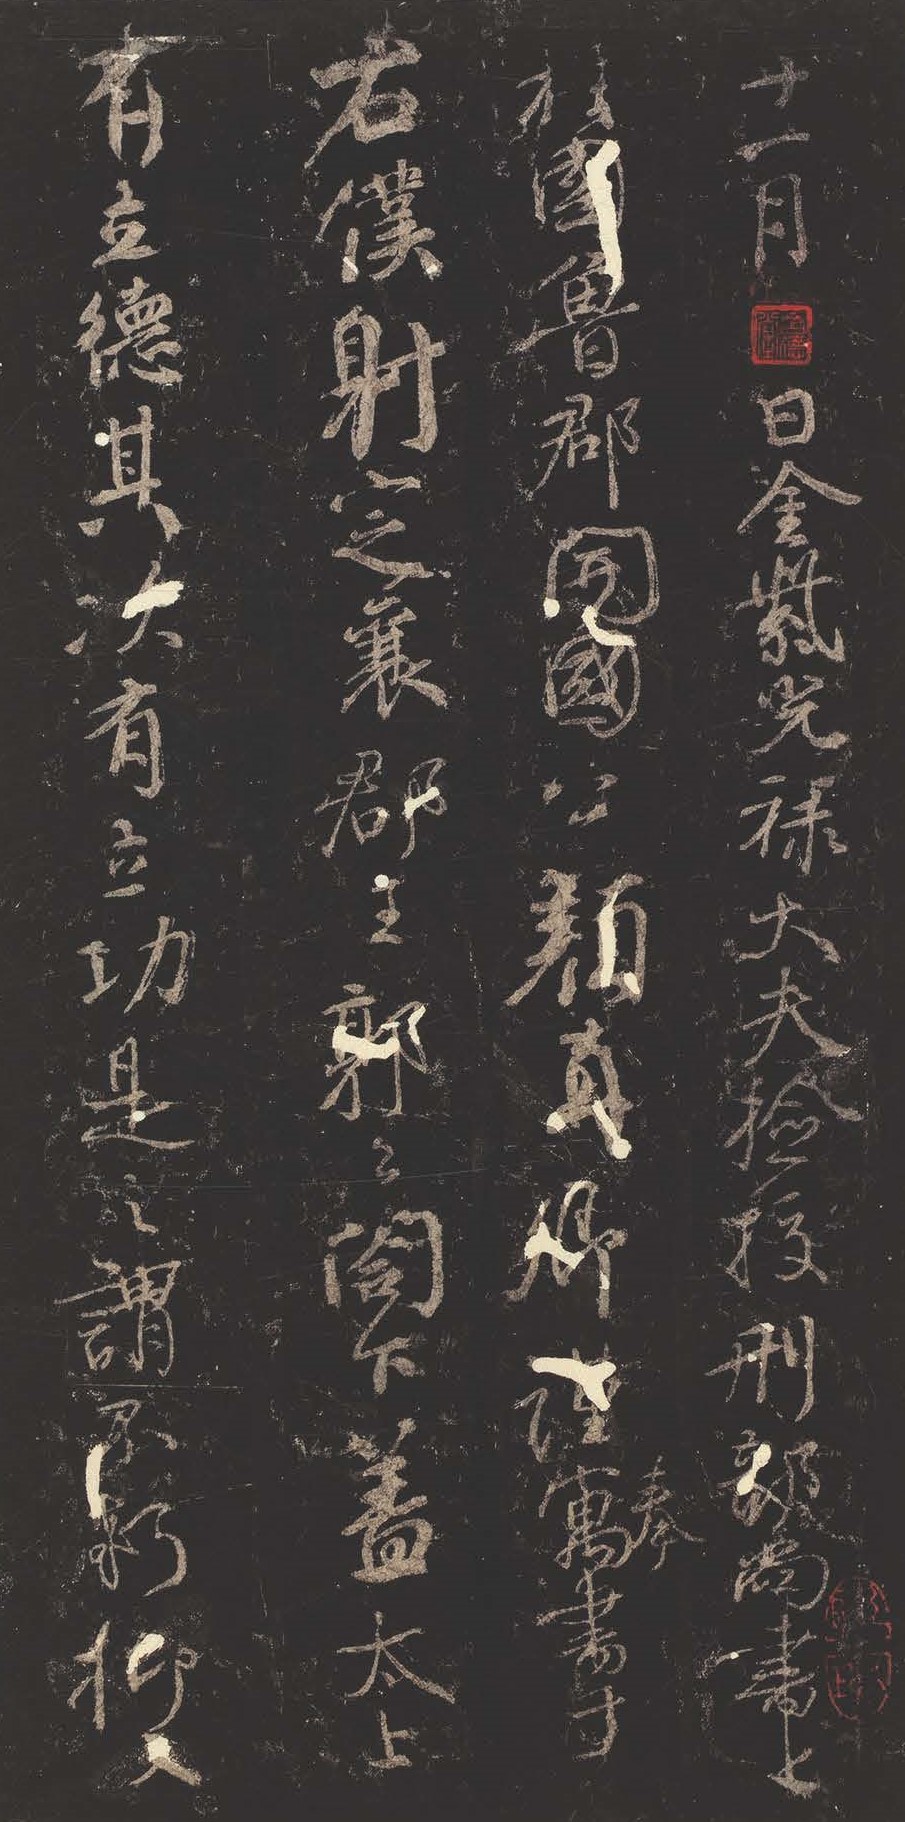 十一月日金紫光禄大夫撿挍刑部尚書上
柱國魯郡開國公顏真卿謹奏寓書于
右僕射定襄郡王郭公閤下蓋太上
有立德其次有立功是之謂不朽抑又